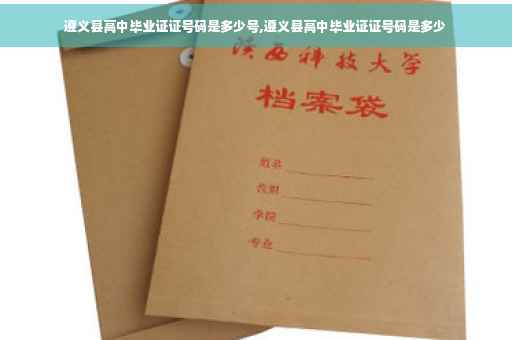 遵义县高中毕业证证号码是多少号,遵义县高中毕业证证号码是多少
陕西科技大学
档案袋
姓名
学院
专业